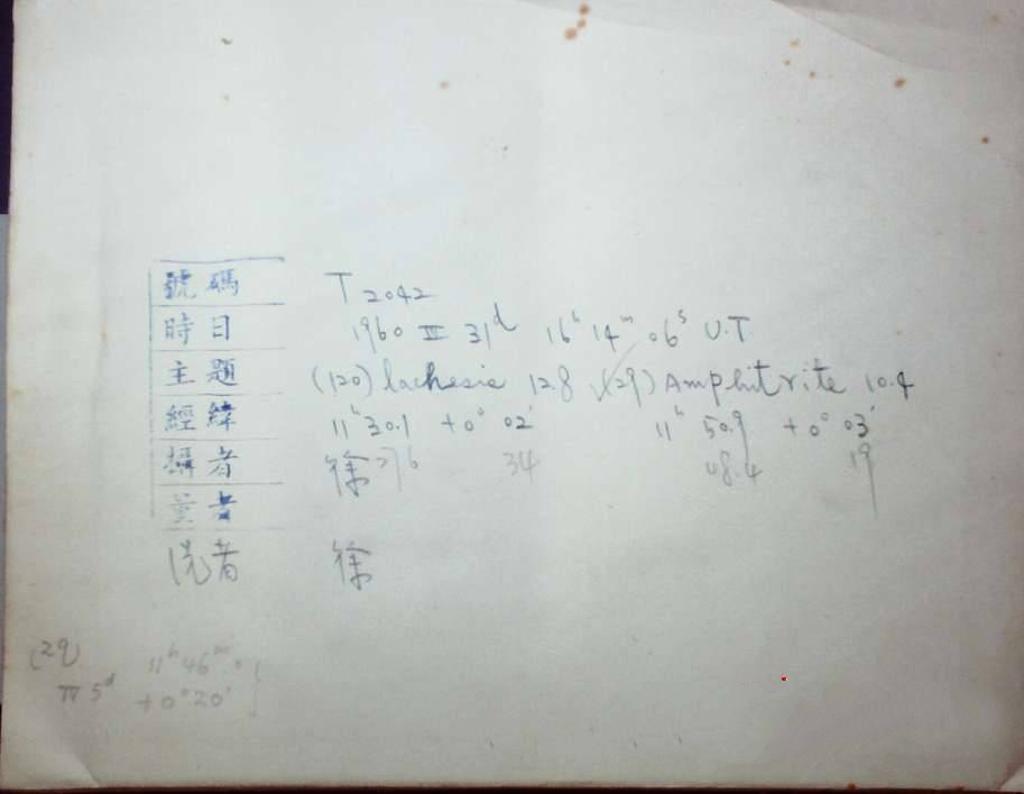 號碼 T 2042
時日 1960 III 31ᵈ 16ʰ 14ᵐ 06ˢ U.T
主題 (120) lachesis 12.8 , (29) Amphitrite 10.4
經緯 11ʰ 30.1 +0° 02' 11ʰ 50.9 +0° 03'
攝者 徐 34 48.4 19
量者
洗者 徐
(29) 11ʰ 46ᵐ.0
IV 5ᵈ +0° 20'